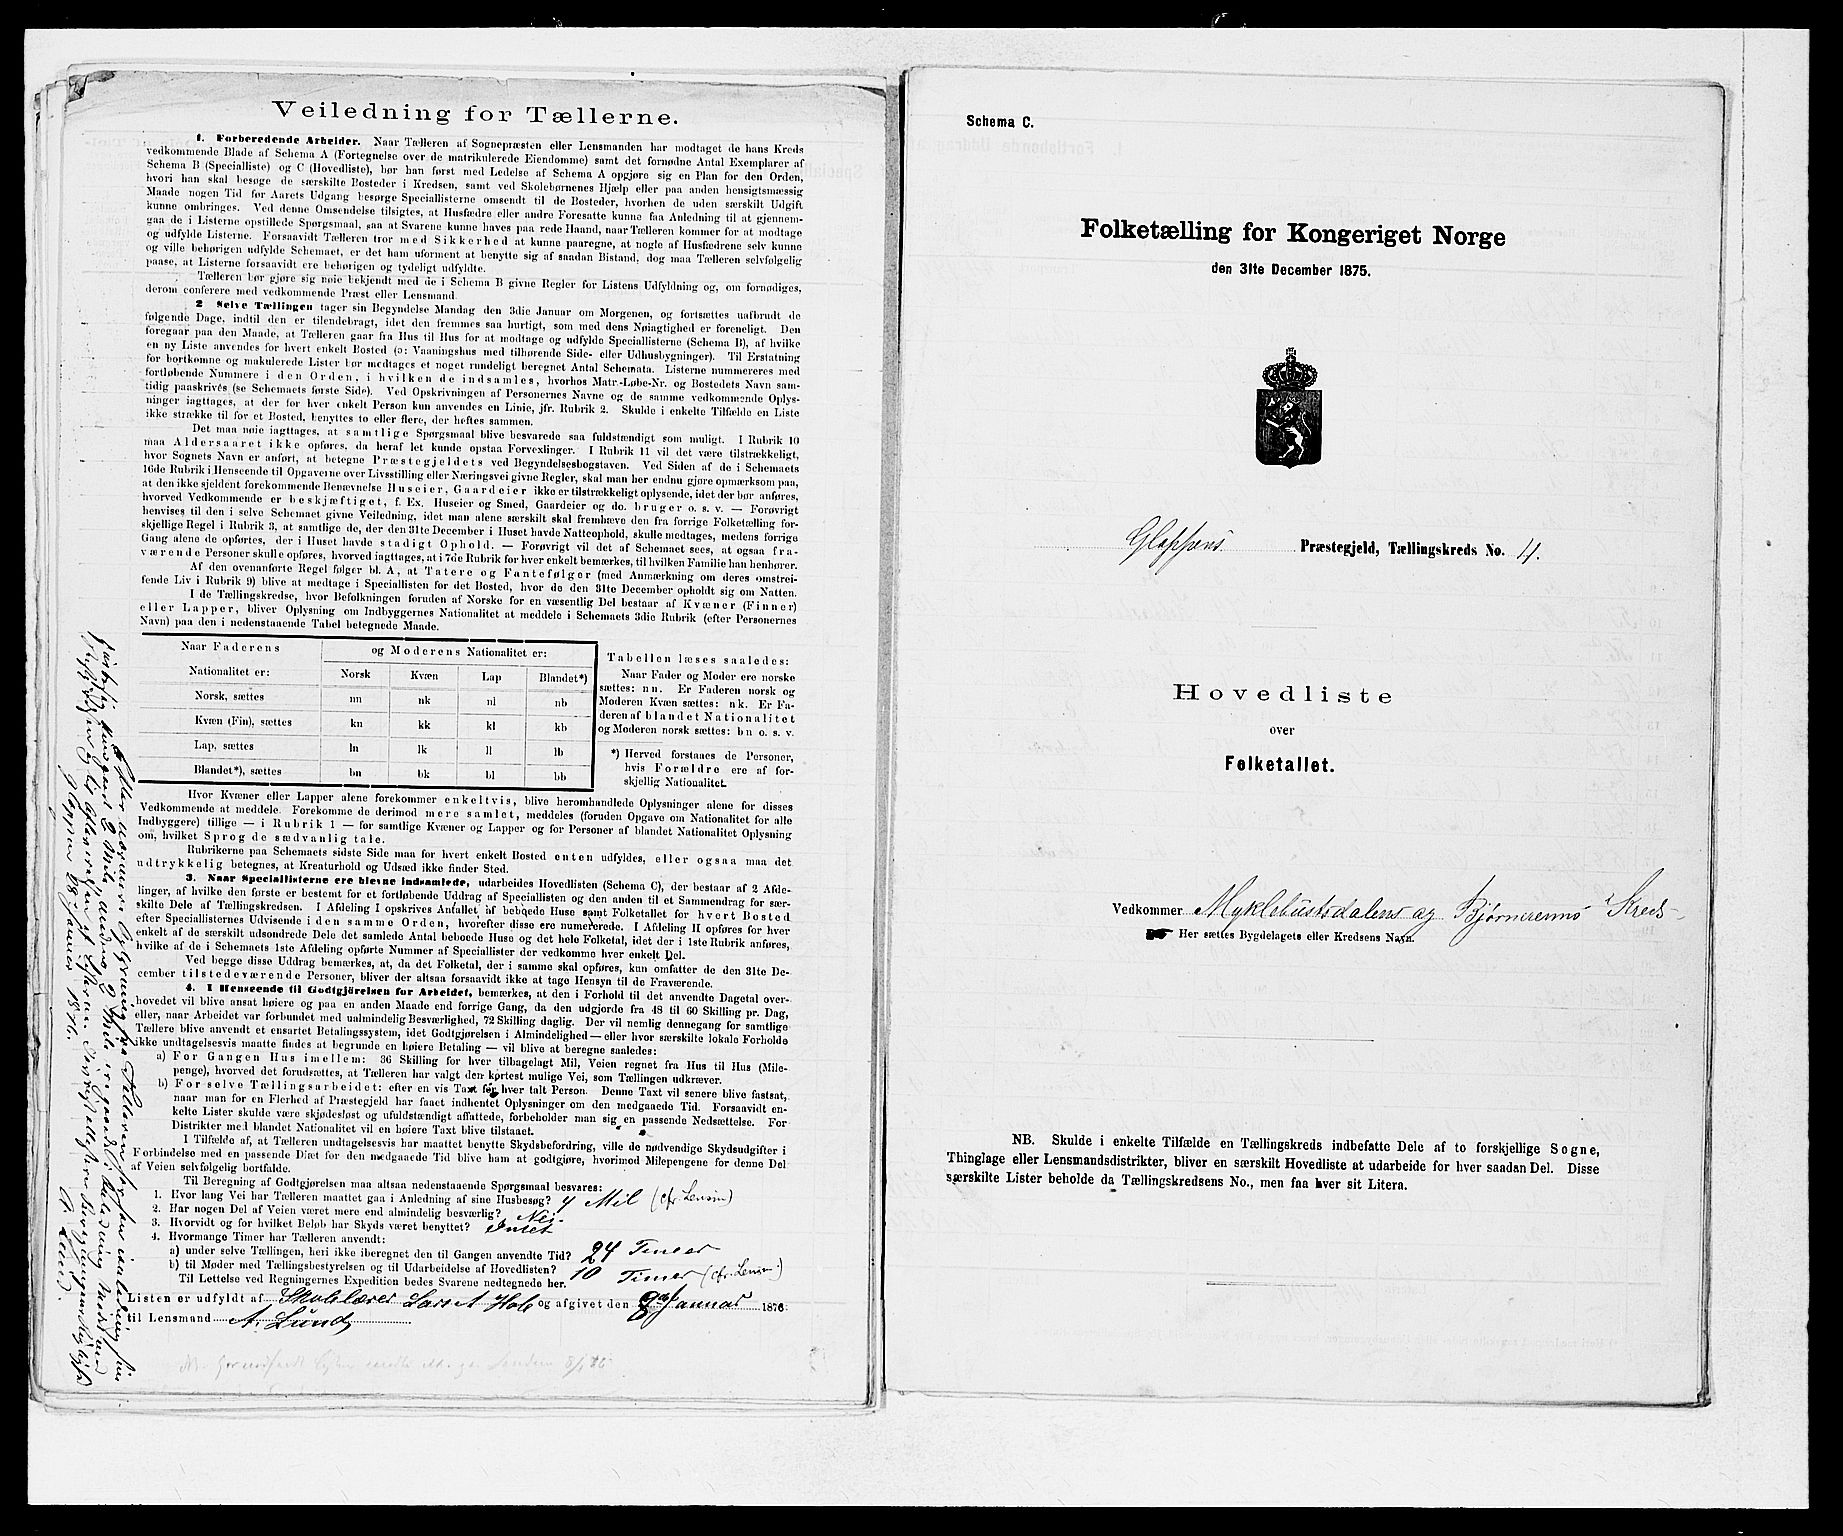 Veiledning for Tællerne.
1. Forberedende Arbeider. Naar Tælleren af Sognepræsten eller Lensmanden har modtaget de hans Kreds
vedkommende Blade af Schema A (Fortegnelse over de matrikulerede Eiendomme) samt det fornødne Antal Exemplarer af
Schema B (Specialliste) og C (Hovedliste), bør han først med Ledelse af Schema A opgjøre sig en Plan for den Orden,
hvori han skal besøge de særskilte Bosteder i Kredsen, samt ved Skolebørnenes Hjælp eller paa anden hensigtsmæssig
Maade nogen Tid før Aarets Udgang besørge Speciallisterne omsendt til de Bosteder, hvorhen de uden særskilt Udgift
kunne ombringes. Ved denne Omsendelse tilsigtes, at Husfædre eller andre Foresatte kunne faa Anledning til at gjennem-
gaa de i Listerne opstillede Spørgsmaal, saa at Svarene kunne haves paa rede Haand, naar Tælleren kommer for at modtage
og udfylde Listerne. Forsaavidt Tælleren tror med Sikkerhed at kunne paaregne, at nogle af Husfædrene selv kunne
og ville behørigen udfylde Schemaet, er det ham uforment at benytte sig af saadan Bistand, dog maa Tælleren selvfølgelig
paase, at Listerne forsaavidt ere behørigen og tydeligt udfyldte.
Tælleren bør gjøre sig nøie bekjendt med de i Schema B givne Regler for Listens Udfyldning og, om fornødiges,
derom conferere med vedkommende Præst eller Lensmand.
2 Selve Tællingen tager sin Begyndelse Mandag den 3die Januar om Morgenen, og fortsættes uafbrudt de
følgende Dage, indtil den er tilendebragt, idet den fremmes saa hurtigt, som med dens Nøiagtighed er foreneligt. Den
foregaar paa den Maade, at Tælleren gaar fra Hus til Hus for at modtage og udfylde Speciallisterne (Schema B), af hvilke
en ny Liste anvendes for hvert enkelt Bosted (ɔ: Vaaningshus med tilhørende Side- eller Udhusbygninger). Til Erstatning
for bortkomne og makulerede Lister bør medtages et noget rundeligt beregnet Antal Schemata. Listerne nummereres med
fortløbende Nummere i den Orden, i hvilken de indsamles, hvorhos Matr.-Løbe-Nr. og Bostedets Navn sam-
tidig paaskrives (se Schemaets første Side). Ved Opskrivningen af Personernes Navne og de samme vedkommende Oplys-
ninger iagttages, at der for hver enkelt Person kun anvendes en Linie, jfr. Rubrik 2. Skulde i enkelte Tilfælde en Liste
ikke strække til for et Bosted, benyttes to eller flere, der heftes sammen.
Det maa nøie iagttages, at samtlige Spørgsmaal blive besvarede saa fuldstændigt som muligt. I Rubrik 10
maa Aldersaaret ikke opføres, da heraf let kunde opstaa Forvexlinger. I Rubrik 11 vil det være tilstrækkeligt,
hvor Sognets Navn er anført, at betegne Præstegjeldets ved Begyndelsesbogstaven. Ved Siden af de i Schemaets
16de Rubrik i Henseende til Opgaverne over Livsstilling eller Næringsvei givne Regler, skal man her endnu gjøre opmærksom paa,
at den ikke sjeldent forekommende Benævnelse Huseier, Gaardeier ikke er tilstrækkeligt oplysende, idet der bør anføres,
hvorved Vedkommende er beskjæftiget, f. Ex. Huseier og Smed, Gaardeier og do. bruger o. s. v. — Forøvrigt
henvises til den i selve Schemaet givne Veiledning, idet man alene særskilt skal fremhæve den fra forrige Folketælling for-
skjellige Regel i Rubrik 3, at samtlige de, der den 31te December i Huset havde Natteophold, skulle medtages, medens forrige
Gang alene de opførtes, der i Huset havde stadigt Ophold. — Forøvrigt vil det af Schemaet sees, at ogsaa fra-
værende Personer skulle opføres, hvorved iagttages, at i 7de Rubrik for hver enkelt bemærkes, til hvilken Familie han henhører.
Af den ovenanførte Regel følger bl. A, at Tatere og Fantefølger (med Anmærkning om deres omstrei-
fende Liv i Rubrik 9) blive at medtage i Speciallisten for det Bosted, hvor de den 31te December opholdt sig om Natten.
I de Tællingskredse, hvor Befolkningen foruden af Norske for en væsentlig Del bestaar af Kvæner (Finner)
eller Lapper, bliver Oplysning om Indbyggernes Nationalitet at meddele i Schemaets 3die Rubrik (efter Personernes
Navn) paa den i nedenstaaende Tabel betegnede Maade.
Naar Faderens og Moderens Nationalitet er:
Nationalitet er: Norsk Kvæn Lap Blandet*)
Norsk, sættes nn nk nl nb
Kvæn (Fin), sættes kn kk kl kb
Lap, sættes ln lk ll lb
Blandet*), sættes bn bk bl bb
Tabellen læses saaledes:
Naar Fader og Moder ere norske
sættes: nn. Er Faderen norsk og
Moderen Kvæn sættes: nk. Er Fa-
deren af blandet Nationalitet
og Moderen norsk sættes: bn o. s. v.
*) Herved forstaaes de Personer,
hvis Forældre ere af for-
skjellig Nationalitet.
Hvor Kvæner eller Lapper alene forekommer enkeltvis, blive heromhandlede Oplysninger alene for disses
Vedkommende at meddele. Forekomme de derimod mere samlet, meddeles (foruden Opgave om Nationalitet for alle
Indbyggere) tillige — i Rubrik 1 — for samtlige Kvæner og Lapper og for Personer af blandet Nationalitet Oplysning
om, hvilket Sprog de sædvanlig tale.
Rubrikerne paa Schemaets sidste Side maa for hvert enkelt Bosted enten udfyldes, eller ogsaa maa det
udtrykkelig betegnes, at Kreaturhold og Udsæd ikke finder Sted.
3. Naar Speciallisterne ere blevne indsamlede, udarbeides Hovedlisten (Schema C), der bestaar af 2 Afde-
linger, af hvilke den første er bestemt for et fortløbende Uddrag af Speciallisten og den anden til et Sammendrag for sær-
skilte Dele af Tællingskredsen. I Afdeling I opskrives Antallet af beboede Huse samt Folketallet for hvert Bosted
efter Speciallisternes Udvisende i den samme Orden, hvorefter disse ere numererede. I Afdeling II opføres for hver
enkelt af de særskilt udsondrede Dele det samlede Antal beboede Huse og det hele Folketal, idet der i 1ste Rubrik anføres,
hvilke af de i Schemaets 1ste Afdeling opførte Nummer af Speciallister der vedkomme hver enkelt Del.
Ved begge disse Uddrag bemærkes, at, da det Folketal, der i samme skal opføres, kun omfatter de den 31te De-
cember tilstedeværende Personer, bliver der altsaa forsaavidt ikke at tage Hensyn til de Fraværende.
4. I Henseende til Godtgjørelsen for Arbeidet, bemærkes, at den i Forhold til det anvendte Dagetal over-
hovedet vil blive ansat høiere og paa en anden Maade end forrige Gang, da den udgjorde fra 48 til 60 Skilling pr. Dag,
eller, naar Arbeidet var forbundet med ualmindelig Besværlighed, 72 Skilling daglig. Der vil nemlig dennegang for samtlige
Tællere blive anvendt et ensartet Betalingssystem, idet Godtgjørelsen i Almindelighed — eller hvor særskilte lokale Forholde
ikke undtagelsesvis maatte findes at begrunde en høiere Betaling — vil blive at beregne saaledes:
a) For Gangen Hus imellem: 36 Skilling for hver tilbagelagt Mil, Veien regnet fra Hus til Hus (Mile-
penge), hvorved det forudsættes, at Tælleren har valgt den kortest mulige Vei, som Tællingen udkræver.
b) For selve Tællingsarbeidet: efter en vis Taxt for hver talt Person. Denne Taxt vil senere blive fastsat,
naar man for en Flerhed af Præstegjeld har faaet indhentet Oplysninger om den medgaaede Tid. Forsaavidt en-
kelte Lister skulde være skjødesløst og ufuldstændigt affattede, forbeholder man sig en passende Nedsættelse. For
Distrikter med blandet Nationalitet vil en høiere Taxt blive tilstaaet.
I Tilfælde af, at Tælleren undtagelsesvis har maattet benytte Skydsbefordring, ville de nødvendige Skydsudgifter i
Forbindelse med en passende Diæt for den medgaaede Tid blive ham at godtgjøre, hvorimod Milepengene for denne Del
af Veien selvfølgelig bortfalde.
Til Beregning af Godtgjørelsen maa altsaa nedenstaaende Spørgsmaal besvares:
1. Hvor lang Vei har Tælleren maattet gaa i Anledning af sine Husbesøg? 4 Mil (cfr Lensm)
2. Har nogen Del af Veien været mere end almindelig besværlig? Nei
3. Hvorvidt og for hvilket Beløb har Skyds været benyttet? Intet
4. Hvormange Timer har Tælleren anvendt:
a) under selve Tællingen, heri ikke iberegnet den til Gangen anvendte Tid? 24 Timer
b) til Møder med Tællingsbestyrelsen og til Udarbeidelse af Hovedlisten? 10 Timer (cfr. Lensm:)
Til Lettelse ved Regningernes Expedition bedes Svarene nedtegnede her.
Listen er udfyldt af Skolelærer Lars A Hole og afgivet den 8de Januar 1876
til Lensmand A. Lund
Gloppen 28. Januar 1876.
A. Lund.
Schema C.
Folketælling for Kongeriget Norge
den 31te December 1875.
Gloppens Præstegjeld, Tællingskreds No. 4.
Hovedliste
over
Folketallet.
Vedkommer Myklebustdalens og Bjørnerems Kreds
Her sættes Bygdelagets eller Kredsens Navn.
NB. Skulde i enkelte Tilfælde en Tællingskreds indbefatte Dele af to forskjellige Sogne,
Thinglage eller Lensmandsdistrikter, bliver en særskilt Hovedliste at udarbeide for hver saadan Del. Disse
særskilte Lister beholde da Tællingskredsens No., men faa hver sit Litera.